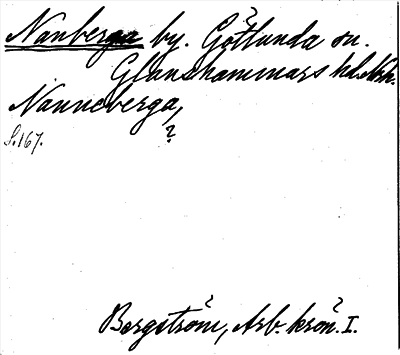 Nanberga by. Götlunda sn.
Glanshammars hd.
Nanneberga,
?
S. 167.
Bergström, Arb. krön. I.